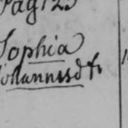 Pag 125
Sophia
Johannesd tr